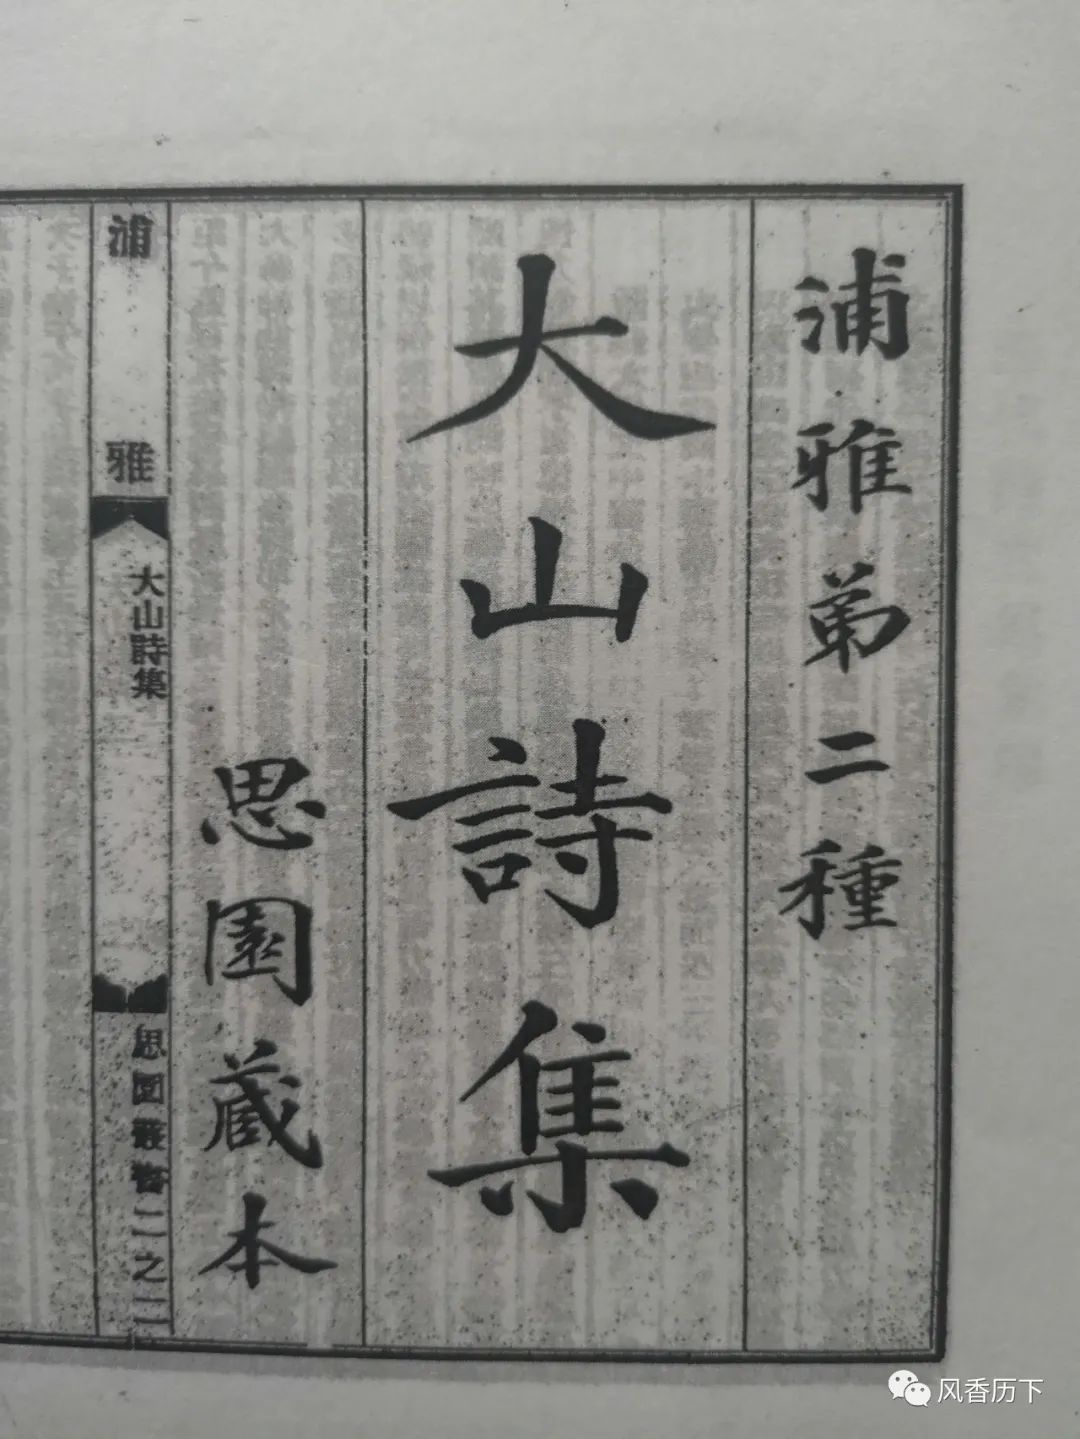 浦雅弟二種
大山詩集
思園藏本
浦雅
大山詩集
思園叢書二之二
风香历下